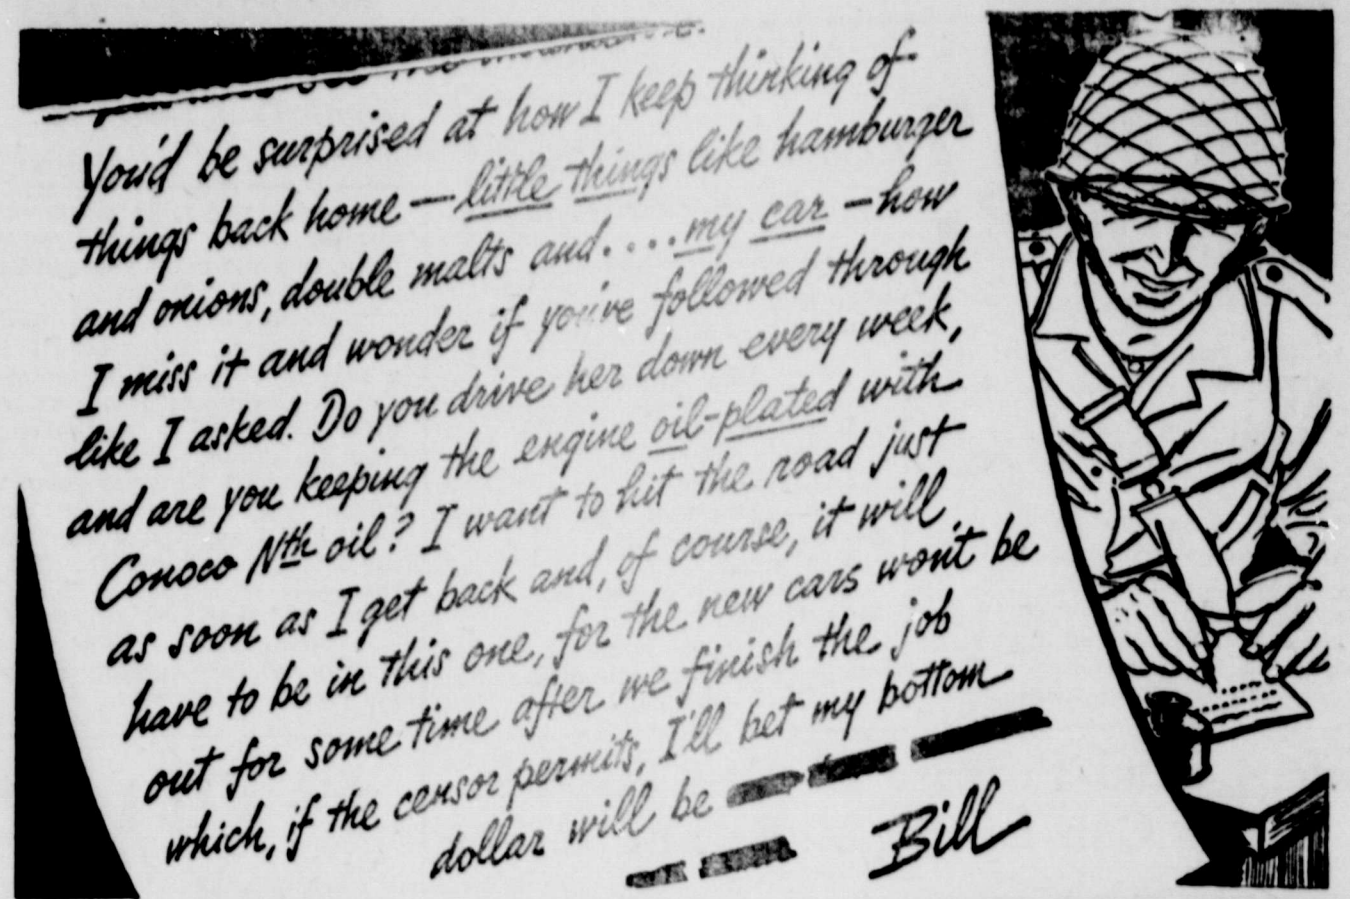 You'd be surprised at how I keep thinking of
things back home — little things like hamburger
and onions, double malts and.... my car — how
I miss it and wonder if you've followed through
like I asked. Do you drive her down every week,
and are you keeping the engine oil-plated with
Conoco Nth oil? I want to hit the road just
as soon as I get back and, of course, it will
have to be in this one, for the new cars won't be
out for some time after we finish the job
which, if the censor permits, I'll bet my bottom
dollar will be
Bill